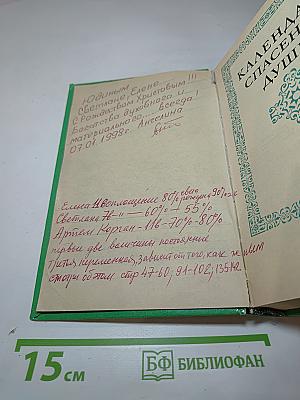 Юдиным
Светлане, Елене...
С Рождеством Христовым!!!
Богатства духовного и
материального... всегда!
07.01.1998г. Ангелина
Елена 11 воплощение 80% 90%
Светлана 60% - 55%
Артём Корган - 116 - 70% - 80%
первые две величины постоянные
третья, переменная, зависит от того, как живём
стр 47-60, 91-102,
КАЛЕНДА
СПАСЕН
ДУШ
15 см
БФ БИБЛИОФАН